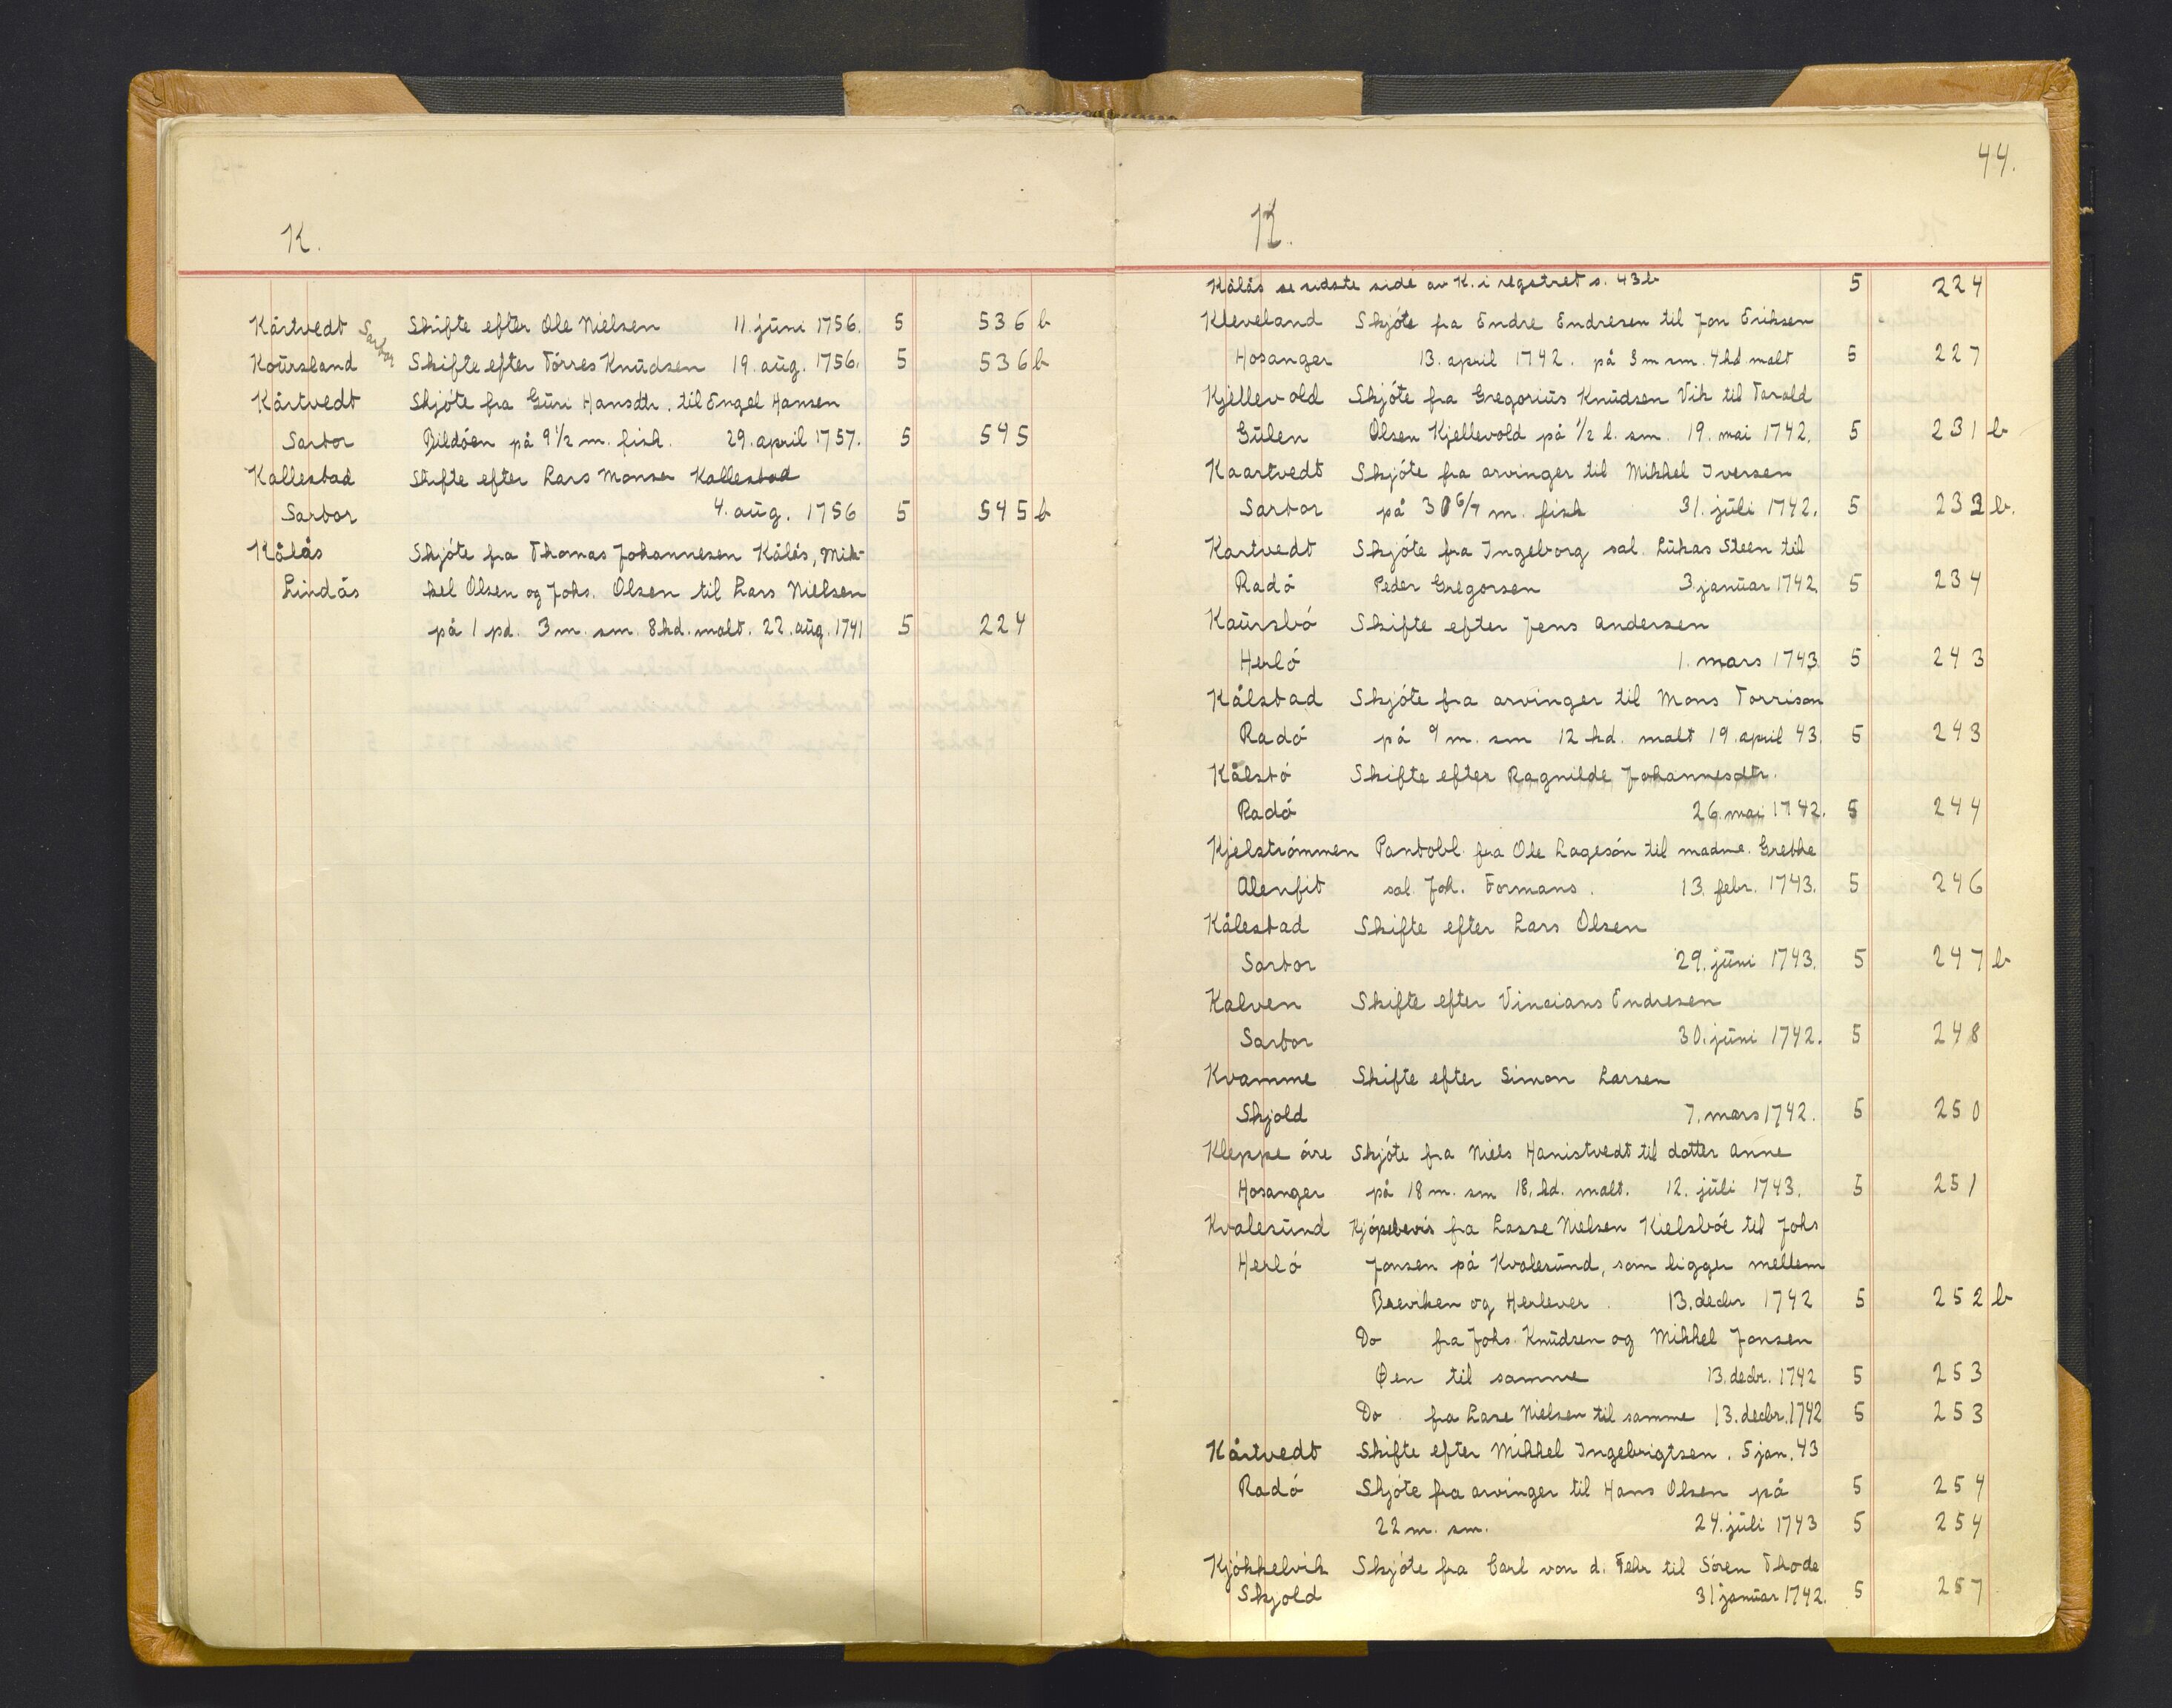 K.
Kårtvedt Sartor Skifte efter Ole Nielsen 11. juni 1756. 5 536 b
Koursland Skifte efter Tórres Knudsen 19. aug. 1756. 5 536 b
Kårtvedt Skjóte fra Guri Hansdtr. til Engel Hansen
Sartor Bildóen på 9 1/2 m. fisk. 29. april 1757. 5 545
Kallestad Skifte efter Lars Monsen Kallestad
Sartor 4. aug. 1756 5 545 b
Kålås Skjóte fra Thomas Johannesen Kålås, Mik-
Lindås kel Olsen og Johs. Olsen til Lars Nielsen
på 1 pd. 3 m. sm. 8 kd. malt. 22. aug. 1741 5 224
44.
K.
Kålås se sidste side av K. i registret s. 43 b 5 224
Kleveland Skjóte fra Endre Endresen til Jon Eriksen
Hosanger 13. april 1742. på 3 m sm. 4 kd malt 5 227
Kjellevold Skjóte fra Gregorius Knudsen Vik til Tarald
Gulen Olsen Kjellevold på 1/2 l. sm. 19. mai 1742. 5 231 b
Kaartvedt Skjóte fra arvinger til Mikkel Iversen
Sartor på 3 6/7 m. fisk 31. juli 1742. 5 233 b.
Kartvedt Skjóte fra Ingeborg sal. Lukas Steen til
Radó Peder Gregorsen 3. januar 1742. 5 234
Kaursbó Skifte efter Jens Andersen
Herló 1. mars 1743 5 243
Kålstad Skjóte fra arvinger til Mons Torrison
Radó på 9 m. sm 12 kd. malt 19. april 43. 5 243
Kålstó Skifte efter Ragnilde Johannesdtr.
Radó 26. mai 1742. 5 244
Kjelstrómmen Pantobl. fra Ole Lagesón til madme. Grethe
Alenfit sal. Joh. Formans. 13. febr. 1743. 5 246
Kålestad Skifte efter Lars Olsen
Sartor 29. juni 1743. 5 247 b
Kalven Skifte efter Vincians Endresen
Sartor 30. juni 1742. 5 248
Kvamme Skifte efter Simon Larsen
Skjold 7. mars 1742. 5 250
Kleppe óre Skjóte fra Niels Hanistvedt til datter Anne
Hosanger på 18 m. sm 18. kd. malt. 12. juli 1743. 5 251
Kvalesund Kjópebevis fra Lasse Nielsen Kielsbóe til Johs
Herló Jonsen på Kvalesund, som ligger mellem
Breviken og Herlever. 13. decbr 1742 5 252 b
Do fra Johs. Knudsen og Mikkel Jonsen
Øen til samme 13. decbr. 1742 5 253
Do. fra Lase Nielsen til samme 13. decbr. 1742 5 253
Kårtvedt Skifte efter Mikkel Ingebrigtsen. 5 jan. 43
Radó Skjóte fra arvinger til Hans Olsen på 5 254
22 m. sm. 24. juli 1743 5 254
Kjókkelvik Skjóte fra Carl von d. Fehr til Sóren Thode
Skjold 31 januar 1742. 5 257